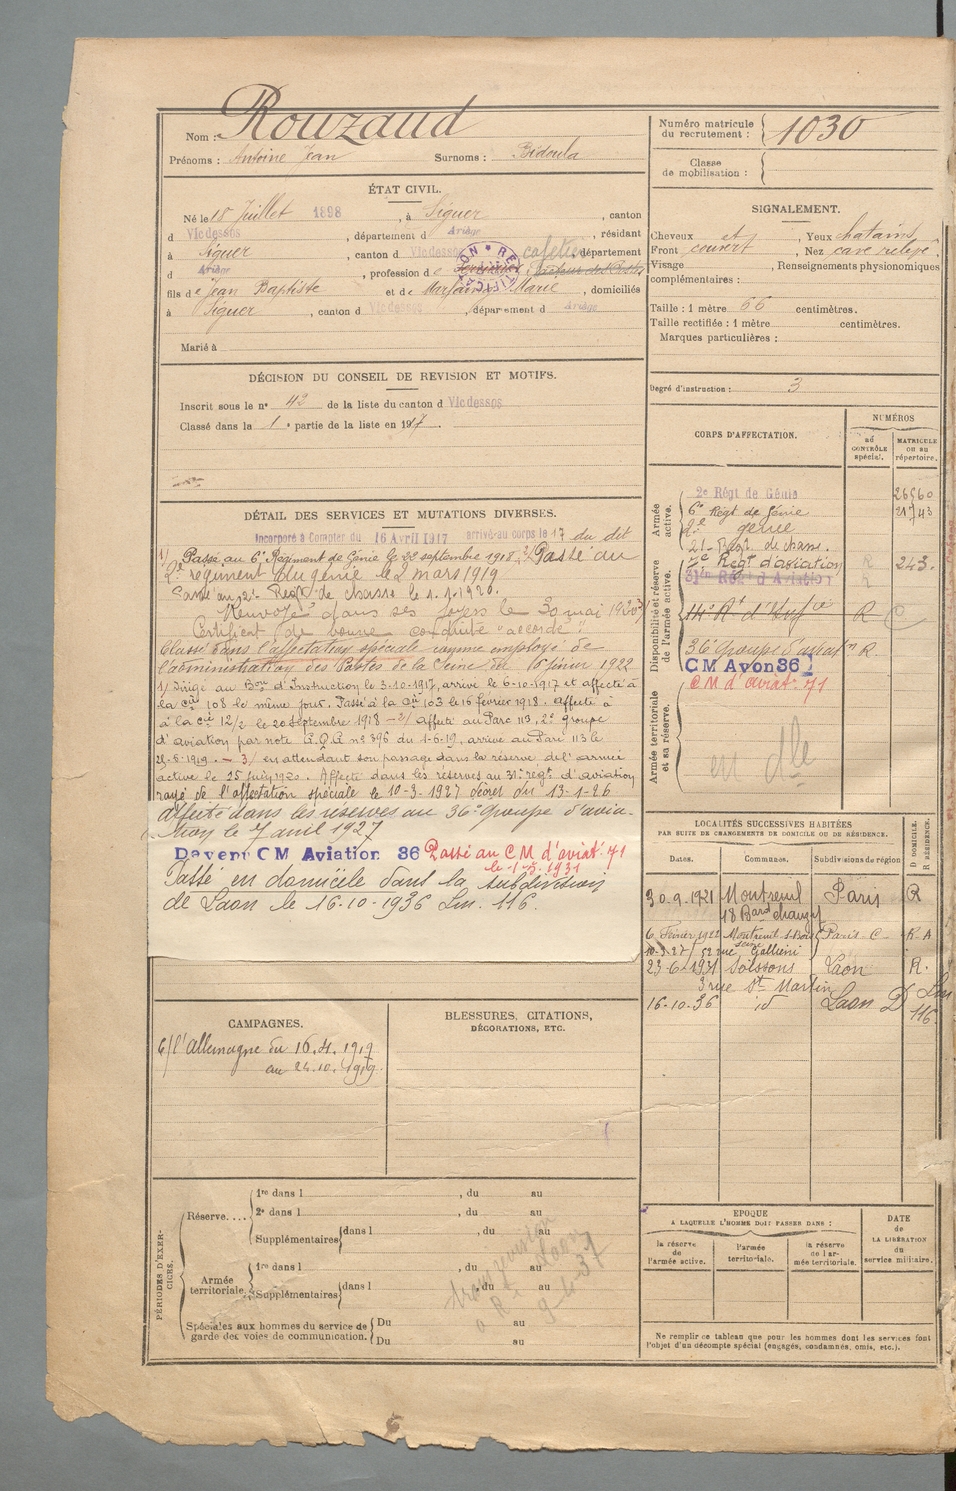 Nom : Rouzaud
Prénoms : Antoine Jean Surnoms : Bidoula
ÉTAT CIVIL.
Né le 18 Juillet 1898, à Siguer, canton
d Vicdessos, département d Ariège, résidant
à Siguer, canton d Vicdessos, département
d Ariège, profession de cafetier
fils de Jean Baptiste et de Marie, domiciliés
à Siguer, canton d Vicdessos, département d Ariège
Marié à
DÉCISION DU CONSEIL DE REVISION ET MOTIFS.
Inscrit sous le n° 42 de la liste du canton d Vicdessos
Classé dans la 1e partie de la liste en 1917.
DÉTAIL DES SERVICES ET MUTATIONS DIVERSES.
Incorporé à Compter du 16 Avril 1917 arrivé au corps le 17 du dit
1/ Passé au 6e Régiment de Génie le 22 septembre 1918. 2/ Passé au
2e régiment du génie le 2 mars 1919
Passé au 21e Regt de chasse le 1.1.1920.
Renvoyé dans ses foyers le 30 mai 1920 3/
Certificat de bonne conduite "accordé".
Classé dans l'affectation spéciale comme employé de
l'administration des Postes de la Seine le 15 juin 1922
1/ Dirigé au Bon d'Instruction le 3-10-1917, arrivé le 6-10-1917 et affecté à
la cie 108 le même jour. Passé à la cie 103 le 16 février 1918. affecté à
à la cie 12/2 le 20 septembre 1918 - 2/ affecté au Parc 113, 2e groupe
d'aviation par note G.Q.G n° 396 du 1-6-19, arrivé au Parc 113 le
25-6-1919. - 3/ en attendant son passage dans la réserve de l'armée
active le 15 juin 1920. Affecté dans les réserves au 31e regt d'aviation
rayé de l'affectation spéciale le 10-3-1927 décret du 13-1-26
affecté dans les réserves au 36e groupe d'avia-
tion le 7 avril 1927
Devenu CM Aviation 36 Passé au CM d'aviat. 71
le 1-5-1931
Passé en domicile dans la subdivision
de Laon le 16-10-1936 Lm. 116.
CAMPAGNES.
C/ l'allemagne du 16.4.1917
au 24.10.1919.
BLESSURES, CITATIONS,
DÉCORATIONS, ETC.
PÉRIODES D'EXERCICES.
Réserve....
1re dans l , du au
2e dans l , du au
Supplémentaires dans l , du au
Armée territoriale.
1re dans l , du au
Supplémentaires dans l , du au
Du au
Spéciales aux hommes du service de
garde des voies de communication.
Du au
Du au
Laon
9-4-37
Numéro matricule
du recrutement : 1030
Classe
de mobilisation :
SIGNALEMENT.
Cheveux et, Yeux chatains
Front couvert, Nez cave relevé
Visage , Renseignements physionomiques
complémentaires :
Taille : 1 mètre 66 centimètres.
Taille rectifiée : 1 mètre centimètres.
Marques particulières :
Degré d'instruction : 3
CORPS D'AFFECTATION.
NUMÉROS
au CONTRÔLE spécial.
MATRICULE ou au répertoire.
Armée active.
2e Régt de Génie 26560
6e Régt de Génie 21743
2e génie
21e Regt de chasse.
Disponibilité et réserve de l'armée active.
Regt d'aviation R 243.
31me Régt d'Aviation R
14e Rt d'Infie R C
36e groupe d'aviatn R
CM Avon 36
CM d'aviat. 71
Armée territoriale et sa réserve.
en dlle
LOCALITÉS SUCCESSIVES HABITÉES
PAR SUITE DE CHANGEMENTS DE DOMICILE OU DE RÉSIDENCE.
D DOMICILE. R RÉSIDENCE.
Dates. Communes. Subdivisions de région
30-9-1921 Montreuil Paris R
18 Bard chanzy
6 Février 1922 Montreuil-s-Bois Paris-C- R.A
seine
10-3-27 52 rue Gallieni
23-6-1931 Soissons Laon R.
3 rue St Martin
16-10-36 id Laon D Lm 116.
EPOQUE
A LAQUELLE L'HOMME DOIT PASSER DANS :
la réserve de l'armée active.
l'armée territoriale.
la réserve de l'armée territoriale.
DATE
de LA LIBÉRATION
du service militaire.
Ne remplir ce tableau que pour les hommes dont les services font
l'objet d'un décompte spécial (engagés, condamnés, omis, etc.).